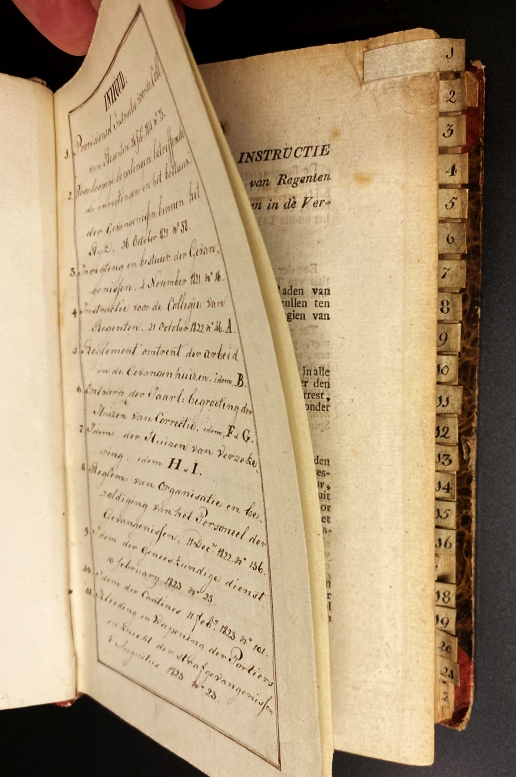 INHOUD.
1. Provisioneel Instructie voor de Coll.
van Regenten
2. Voorloopige bepalingen betreffende
de inrigtingen en het bestuur
der Gevangenissen binnen het
Rijk. 26 October 1821 Nº 51.
3. Inrigting en bestuur der Gevan-
genissen. 4 November 1821 Nº 16.
4. Instructie voor de Collegie van
Regenten. 21 October 1822 Nº 46. A.
5. Reglement omtrent der arbeid
in de Gevangenhuizen. idem. B.
6. Ontwerp der Jaarl: begrooting der
Huizen van Correctie. idem, F. & G.
7. Idem der Huizen van verzeke
ring. idem H. & I.
8. Reglem. van Organisatie en be-
zoldiging van het Personeel der
Gevangenissen. 11 Dec. 1822 Nº 156.
9. Idem der Geneeskundige dienst
10 february 1823 Nº 25
10. Idem der Cantines 11 feb. 1823 Nº 101.
11. Kleeding en Wapening der Portiers
en Knecht der strafgevangenissen
8 Augustus 1823 Nº 23.
INSTRUCTIE
van Regenten
en in de Ver-
laden van
zullen ten
gien van
in alle
er den
rrest,
onder
den
es-
uit
or
et
1
2
3
4
5
6
7
8
9
10
11
12
13
14
15
16
18
19
20
21